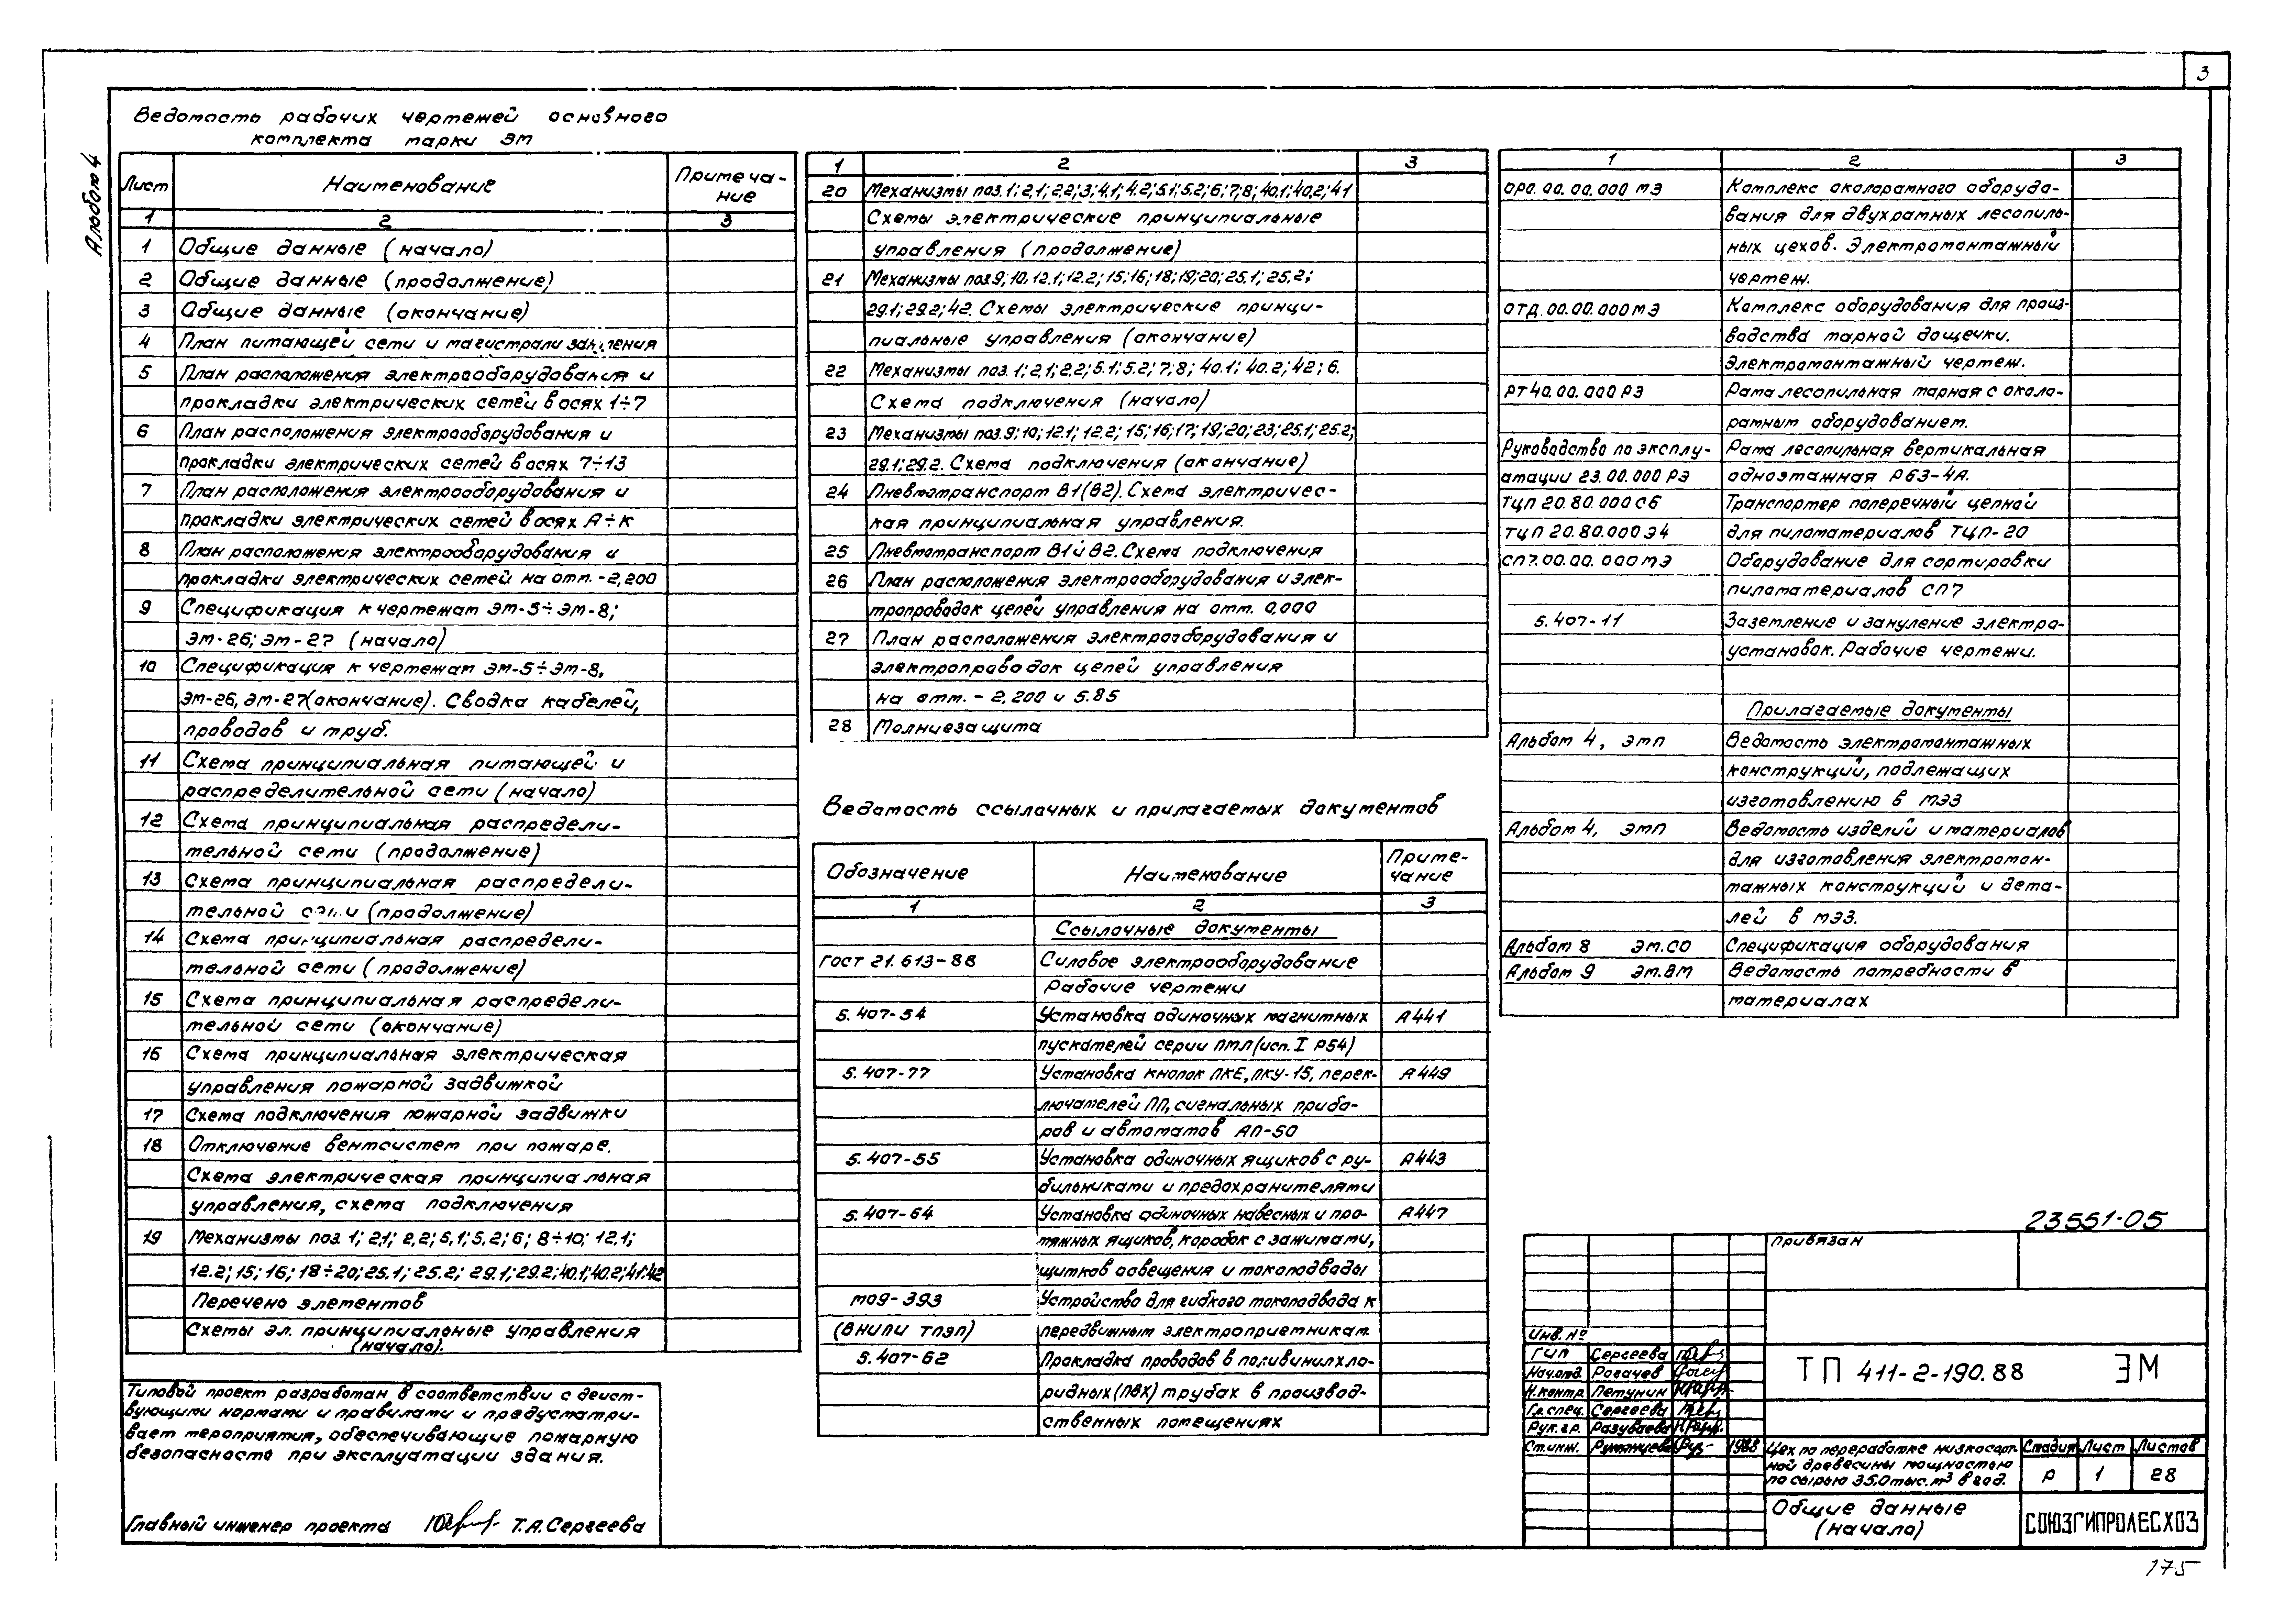 3
Альбом 4
Ведомость рабочих чертежей основного
комплекта марки ЭМ
Лист Наименование Примеча-
ние
1 2 3
1 Общие данные (начало)
2 Общие данные (продолжение)
3 Общие данные (окончание)
4 План питающей сети и магистрали зануления
5 План расположения электрооборудования и
прокладки электрических сетей в осях 1÷7
6 План расположения электрооборудования и
прокладки электрических сетей в осях 7÷13
7 План расположения электрооборудования и
прокладки электрических сетей в осях А÷К
8 План расположения электрооборудования и
прокладки электрических сетей на отм. -2,200
9 Спецификация к чертежам ЭМ-5÷ЭМ-8;
ЭМ-26; ЭМ-27 (начало)
10 Спецификация к чертежам ЭМ-5÷ЭМ-8,
ЭМ-26, ЭМ-27(окончание). Сводка кабелей,
проводов и труб.
11 Схема принципиальная питающей и
распределительной сети (начало)
12 Схема принципиальная распредели-
тельной сети (продолжение)
13 Схема принципиальная распредели-
тельной сети (продолжение)
14 Схема принципиальная распредели-
тельной сети (продолжение)
15 Схема принципиальная распредели-
тельной сети (окончание)
16 Схема принципиальная электрическая
управления пожарной задвижкой
17 Схема подключения пожарной задвижки
18 Отключение вентсистем при пожаре.
Схема электрическая принципиальная
управления, схема подключения
19 Механизмы поз. 1; 2,1; 2,2; 5,1; 5,2; 6; 8÷10; 12.1;
12.2; 15; 16; 18÷20; 25.1; 25.2; 29.1; 29.2; 40.1; 40.2; 41; 42
Перечень элементов
Схемы эл. принципиальные управления
(начало).
Типовой проект разработан в соответствии с дейст-
вующими нормами и правилами и предусматри-
вает мероприятия, обеспечивающие пожарную
безопасность при эксплуатации здания.
Главный инженер проекта Т.А.Сергеева
1 2 3
20 Механизмы поз. 1; 2,1; 2,2; 3; 4.1; 4.2; 5.1; 5.2; 6; 7; 8; 40.1; 40.2; 41
Схемы электрические принципиальные
управления (продолжение)
21 Механизмы поз. 9; 10; 12.1; 12.2; 15; 16; 18; 19; 20; 25.1; 25.2;
29.1; 29.2; 42. Схемы электрические принци-
пиальные управления (окончание)
22 Механизмы поз. 1; 2,1; 2,2; 5.1; 5.2; 7; 8; 40.1; 40.2; 42; 6.
Схема подключения (начало)
23 Механизмы поз. 9; 10; 12.1; 12.2; 15; 16; 17; 19; 20; 23; 25.1; 25.2;
29.1; 29.2. Схема подключения (окончание)
24 Пневмотранспорт В1(В2). Схема электричес-
кая принципиальная управления.
25 Пневмотранспорт В1 и В2. Схема подключения
26 План расположения электрооборудования и элек-
тропроводок цепей управления на отм. 0,000
27 План расположения электрооборудования и
электропроводок цепей управления
на отм. - 2,200 и 5.85
28 Молниезащита
Ведомость ссылочных и прилагаемых документов
Обозначение Наименование Приме-
чание
1 2 3
Ссылочные документы
ГОСТ 21.613-88 Силовое электрооборудование
Рабочие чертежи
5.407-54 Установка одиночных магнитных А441
пускателей серии ПМЛ (исп. I Р54)
5.407-77 Установка кнопок ПКЕ, ПКУ-15, перек- А449
лючателей ПП, сигнальных прибо-
ров и автоматов АП-50
5.407-55 Установка одиночных ящиков с ру- А443
бильниками и предохранителями
5.407-64 Установка одиночных навесных и про- А447
тяжных ящиков, коробок с зажимами,
щитков освещения и токоподводы
М09-393 Устройство для гибкого токоподвода к
(ВНИПИ ТПЭП) передвижным электроприемникам.
5.407-62 Прокладка проводов в поливинилхло-
ридных (ПВХ) трубах в производ-
ственных помещениях
1 2 3
ОРО.00.00.000 МЭ Комплекс околорамного оборудо-
вания для двухрамных лесопиль-
ных цехов. Электромонтажный
чертеж.
ОТД.00.00.000МЭ Комплекс оборудования для произ-
водства тарной дощечки.
Электромонтажный чертеж.
РТ40.00.000 РЭ Рама лесопильная тарная с около-
рамным оборудованием.
Руководство по эксплу- Рама лесопильная вертикальная
атации 23.00.000 РЭ одноэтажная Р63-4А.
ТЦП 20.80.000 СБ Транспортер поперечный цепной
ТЦП 20.80.000Э4 для пиломатериалов ТЦП-20
СП7.00.00.000 МЭ Оборудование для сортировки
пиломатериалов СП7
5.407-11 Заземление и зануление электро-
установок. Рабочие чертежи.
Прилагаемые документы
Альбом 4, ЭМП Ведомость электромонтажных
конструкций, подлежащих
изготовлению в МЭЗ
Альбом 4, ЭМП Ведомость изделий и материалов
для изготовления электромон-
тажных конструкций и дета-
лей в МЭЗ.
Альбом 8 ЭМ.СО Спецификация оборудования
Альбом 9 ЭМ.ВМ Ведомость потребности в
материалах
23551-05
Привязан
Инв. №
ГИП Сергеева
Нач.отд. Рогачев
Н.контр. Петунин
Гл.спец. Сергеева
Рук.гр. Разуваева
Ст.инж. Румянцева 1988
ТП 411-2-190.88 ЭМ
Цех по переработке низкосорт-
ной древесины мощностью
по сырью 35.0 тыс. м³ в год.
Стадия Лист Листов
Р 1 28
Общие данные
(начало)
СОЮЗГИПРОЛЕСХОЗ
175